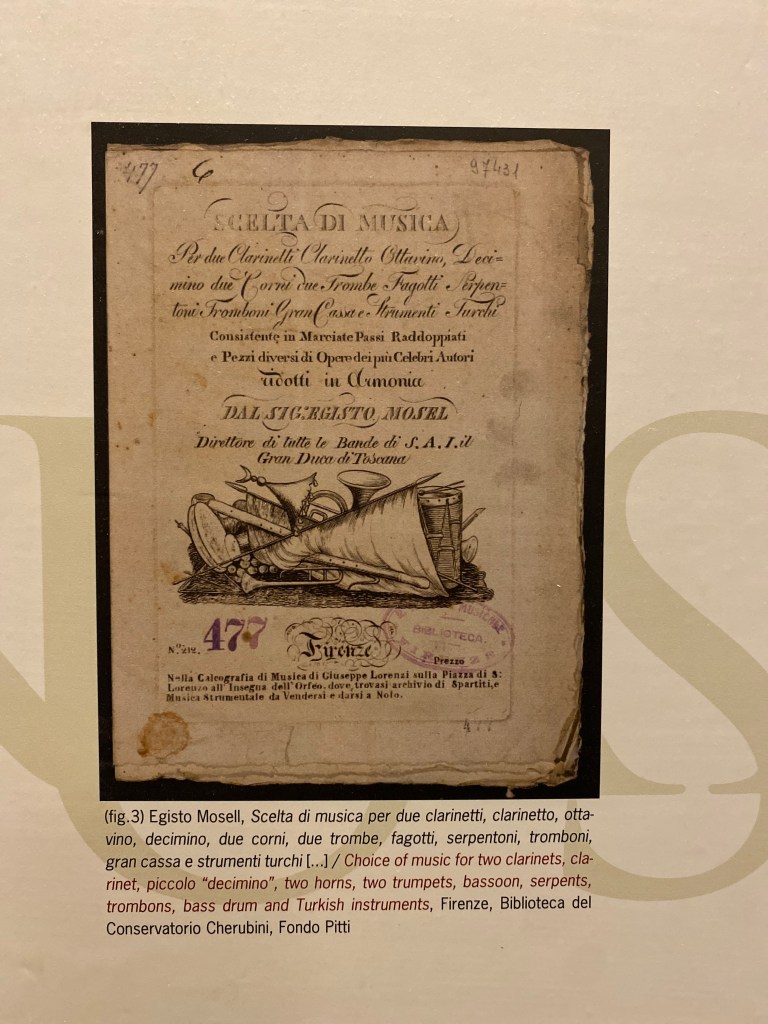 477 6 97431
SCELTA DI MUSICA
Per due Clarinetti Clarinetto Ottavino, Deci=
mino due Corni due Trombe Fagotti Serpen=
toni Tromboni Gran Cassa e Strumenti Turchi
Consistente in Marciate Passi Raddoppiati
e Pezzi diversi di Opere dei più Celebri Autori
ridotti in Armonia
DAL SIG. EGISTO MOSEL
Direttore di tutte le Bande di S. A. I. il
Gran Duca di Toscana
MUSICALE
BIBLIOTECA
FIRENZE
No. 212. 477 Firenze Prezzo
Nella Calcografia di Musica di Giuseppe Lorenzi sulla Piazza di S:
Lorenzo all' Insegna dell' Orfeo. dove trovasi archivio di Spartiti, e
Musica Strumentale da Vendersi e darsi a Nolo.
(fig.3) Egisto Mosell, Scelta di musica per due clarinetti, clarinetto, otta-
vino, decimino, due corni, due trombe, fagotti, serpentoni, tromboni,
gran cassa e strumenti turchi [...] / Choice of music for two clarinets, cla-
rinet, piccolo “decimino”, two horns, two trumpets, bassoon, serpents,
trombons, bass drum and Turkish instruments, Firenze, Biblioteca del
Conservatorio Cherubini, Fondo Pitti